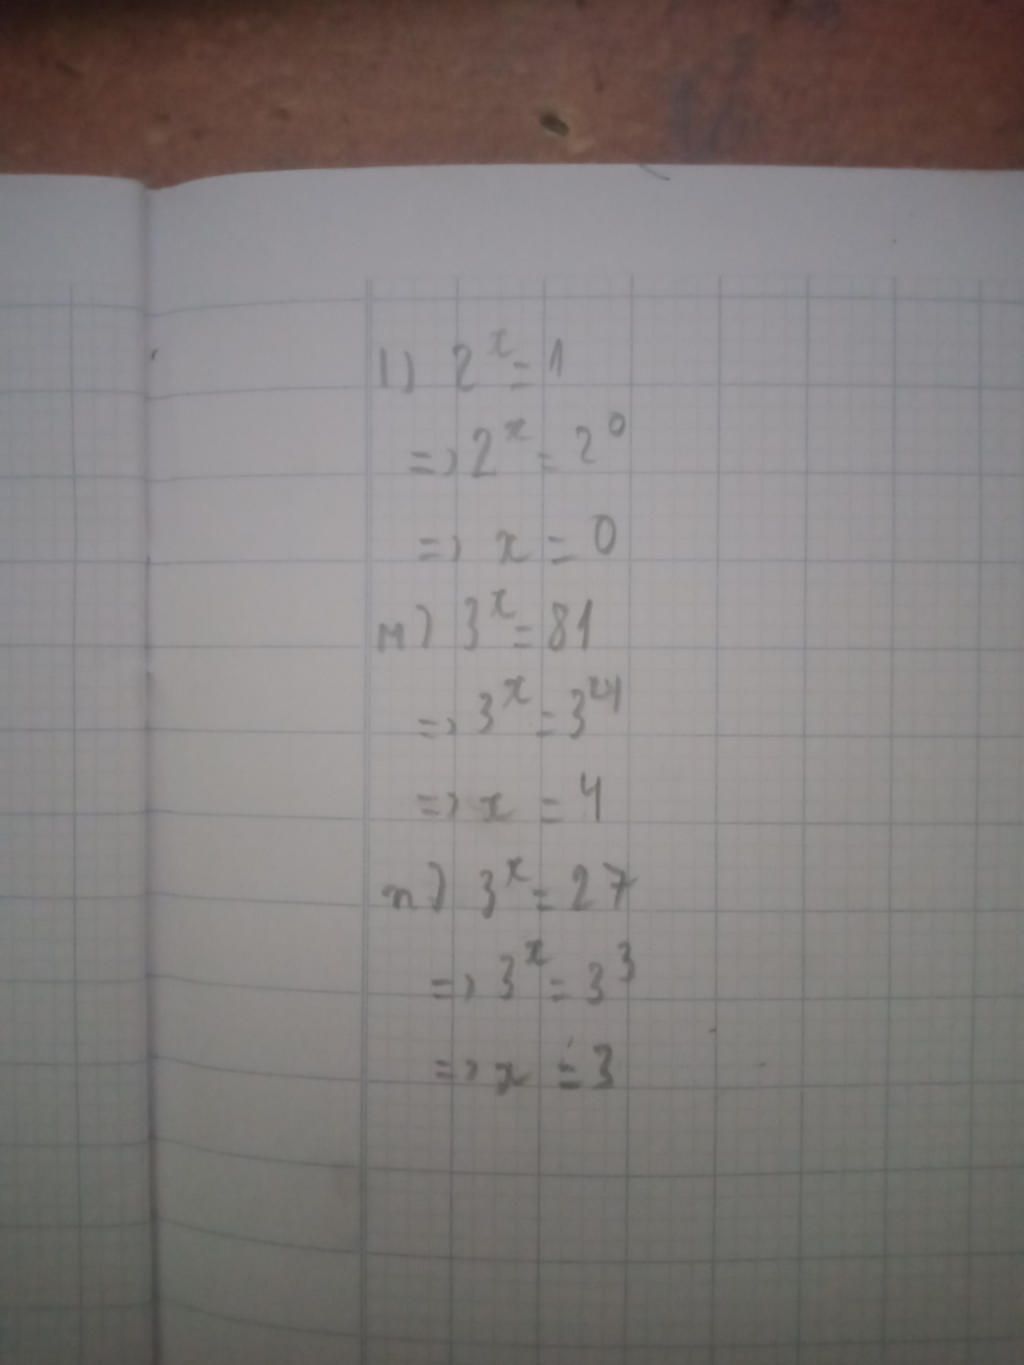 l) 2^x = 1
=> 2^x = 2^0
=> x = 0
m) 3^x = 81
=> 3^x = 3^4
=> x = 4
n) 3^x = 27
=> 3^x = 3^3
=> x = 3